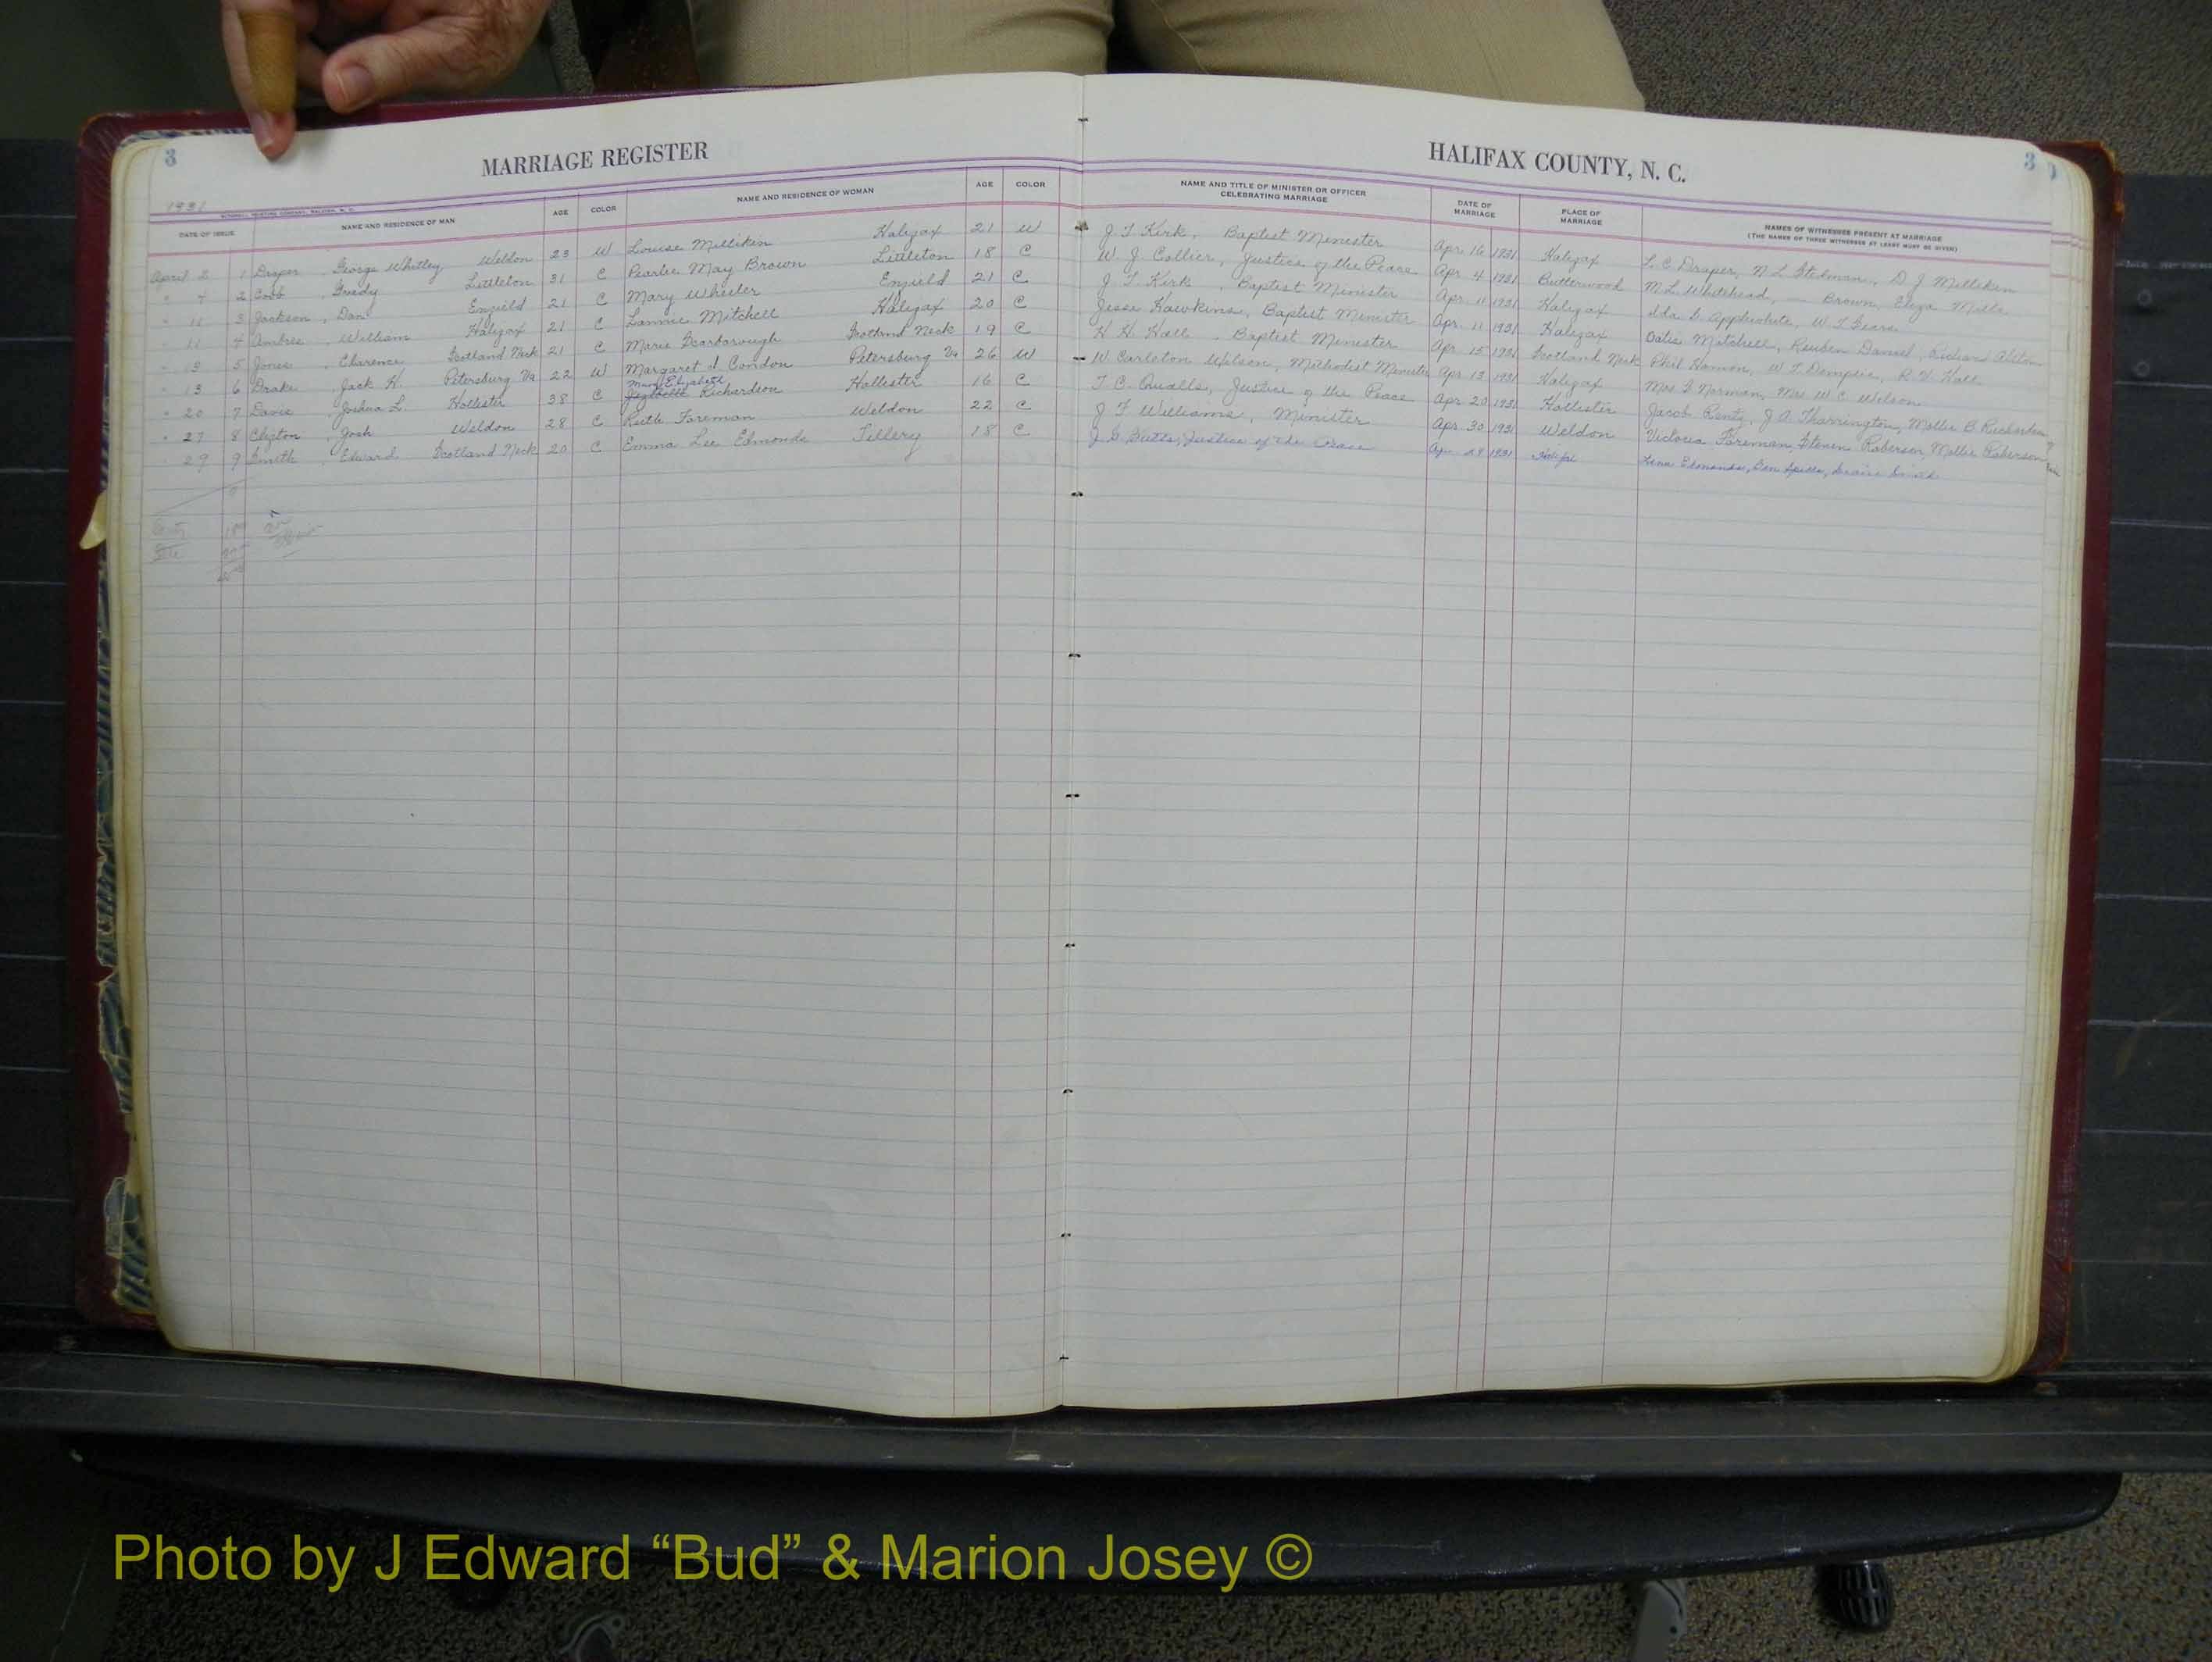 3
MARRIAGE REGISTER
HALIFAX COUNTY, N. C.
3
1931
DATE OF ISSUE NAME AND RESIDENCE OF MAN AGE COLOR NAME AND RESIDENCE OF WOMAN AGE COLOR NAME AND TITLE OF MINISTER OR OFFICER CELEBRATING MARRIAGE DATE OF MARRIAGE PLACE OF MARRIAGE NAMES OF WITNESSES PRESENT AT MARRIAGE
(THE NAMES OF THREE WITNESSES AT LEAST MUST BE GIVEN)
April 2 1 Draper, George Whitley Weldon 23 W Louise Milliken Halifax 21 W J. T. Kirk, Baptist Minister Apr. 16 1931 Halifax L. C. Draper, N. L. Stedman, D J Milliken
" 4 2 Cobb, Littleton 31 C Pearlie May Brown Littleton 18 C W. J. Collier, Justice of the Peace Apr. 4 1931 Butterwood M. L. Whitehead, — Brown, Eliza Mills
" 11 3 Jackson, Dan Enfield 21 C Mary Wheeler Enfield 21 C J. T. Kirk, Baptist Minister Apr. 11 1931 Halifax Ida G Applewhite, W. T.
" 11 4 William Halifax 21 C Lannie Mitchell Halifax 20 C Jesse Hawkins, Baptist Minister Apr. 11 1931 Halifax Mitchell, Reuben Daniel, Alston
" 13 5 Jones, Clarence Scotland Neck 21 C Marie Scarborough Scotland Neck 19 C Hall, Baptist Minister Apr. 15 1931 Scotland Neck Phil Hamon, W. T. Dempsie, Hall
" 13 6 Drake, Jack H. Petersburg Va 22 W Margaret J Condon Petersburg Va 26 W W. Carleton Wilson, Methodist Minister Apr. 13 1931 Halifax Mrs G Norman, Mrs W C Wilson
" 20 7 Davie, Joshua L. Hollister 38 C Mary Elizabeth Richardson Hollister 16 C T. C. Qualls, Justice of the Peace Apr. 20 1931 Hollister Jacob Rentz, J A Tharrington, Mollie B Richardson
" 27 8 Clifton, Josh Weldon 28 C Ruth Foreman Weldon 22 C J F Williams, Minister Apr. 30 1931 Weldon Victoria Foreman, Steven Roberson, Mollie Roberson
" 29 9 Smith, Edward Scotland Neck 20 C Emma Lee Edmonds Tillery 18 C J. G. Butts, Justice of the Peace Apr. 29 1931 Halifax Lena Edmonds, Ben Spells, Smith
9
Photo by J Edward “Bud” & Marion Josey ©